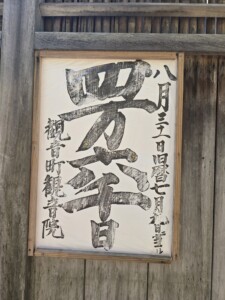 八月三十一日旧暦七月九日
四万六千日
観音町観音院